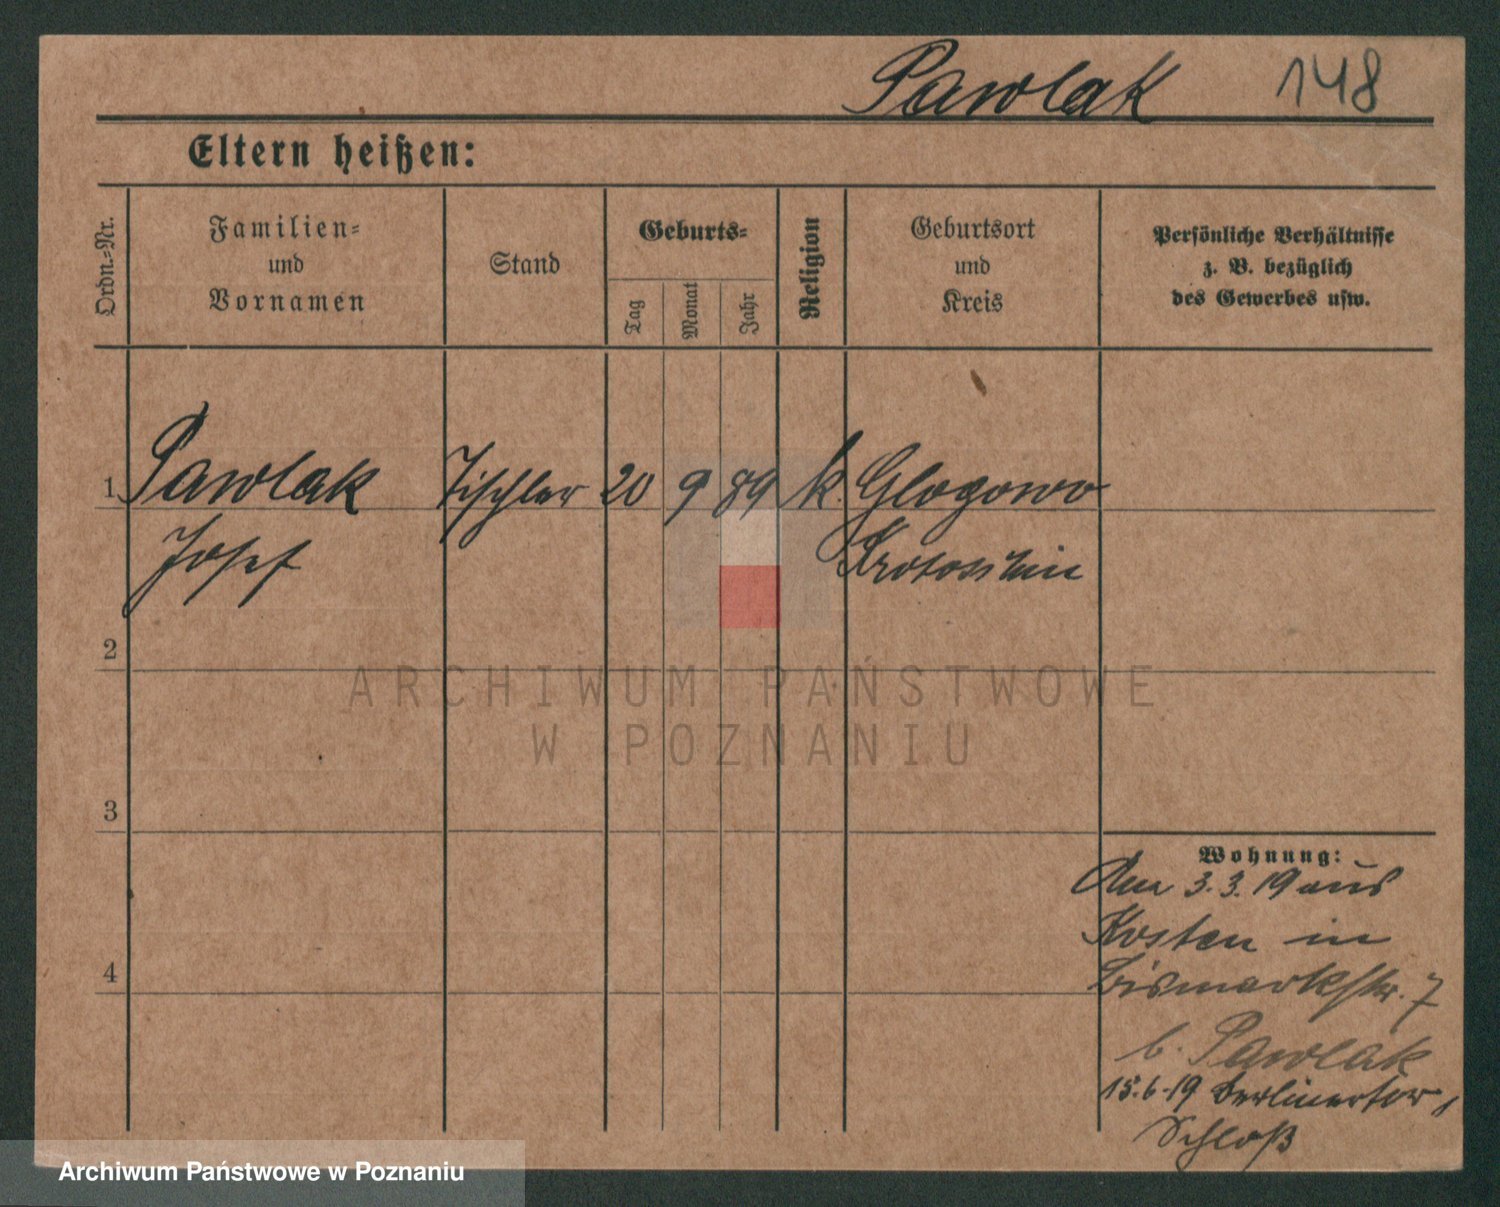 Pawlak 148
Eltern heißen:
Ordn.-Nr.
Familien-
und
Vornamen
Stand
Geburts-
Tag
Monat
Jahr
Religion
Geburtsort
und
Kreis
Persönliche Verhältnisse
z. B. bezüglich
des Gewerbes usw.
1 Pawlak Tischler 20 9 89 k. Glogowo
Josef Krotoschin
2
ARCHIWUM PAŃSTWOWE
W POZNANIU
3
Wohnung:
Am 3.3.19 aus
Kosten in
4
Bismarkstr. 7
b. Pawlak
15.6.19 Berlinertor,
Schloß
Archiwum Państwowe w Poznaniu